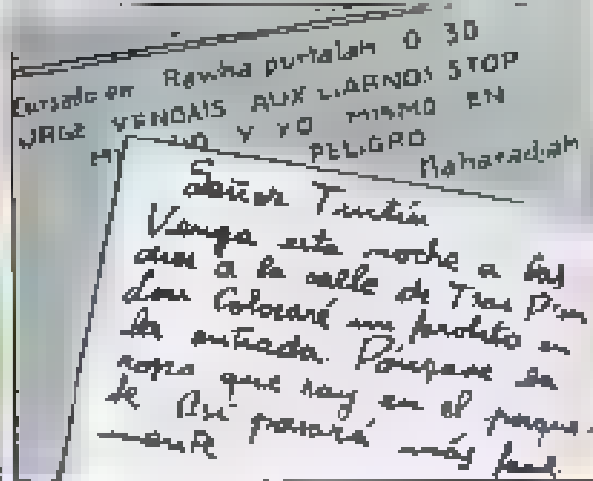 Cursado en Rawhapurtalah 0 30
URGE VENGAIS AUXILIARNOS STOP
Y YO MISMO EN
PELIGRO
Maharadjah
Señor Tintín
Venga esta noche a las
diez a la calle de Tras
Colocaré un farolito en
la entrada. Póngase la
ropa que hay en el paque-
te Así pasará más facil
mente